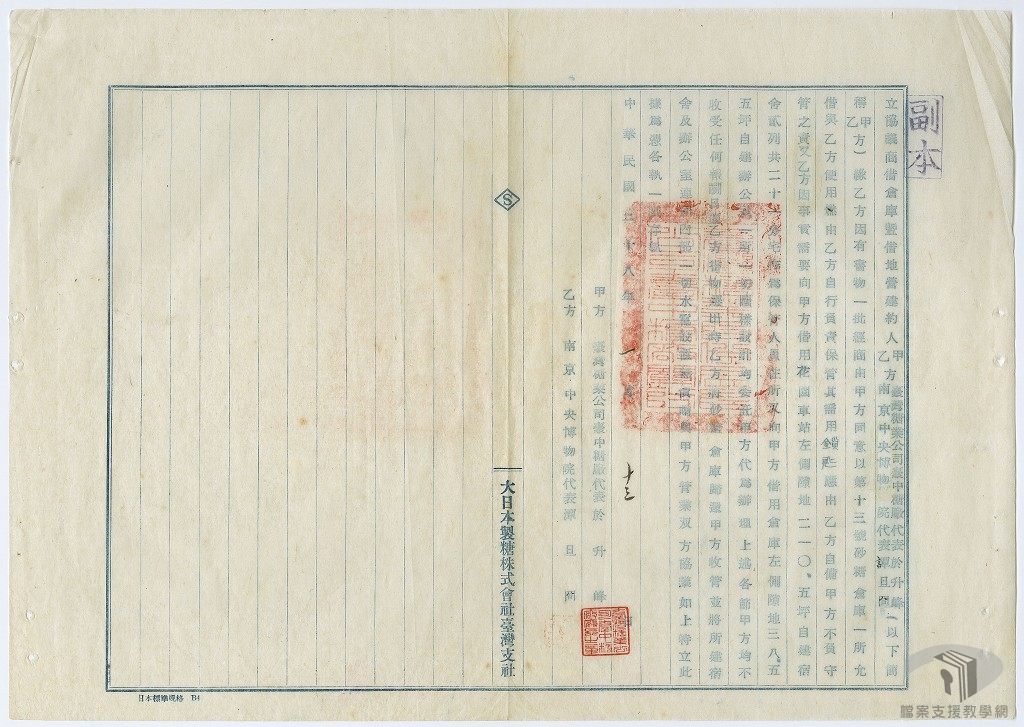 副本
立協議商借倉庫暨借地營建約人甲方臺灣糖業公司臺中糖廠代表於升峰(以下簡
乙方南京中央博物院代表譚旦冏
稱甲
乙方)緣乙方因有書物一批經商由甲方同意以第十三號砂糖倉庫一所允
借與乙方使用惟由乙方自行負責保管其需用鎖匙應由乙方自備甲方不負守
管之責又乙方因事實需要向甲方借用花園車站左側隙地二一〇、五坪自建宿
舍貳列共二十一
保管人員住所又向甲方借用倉庫左側隙地三八、五
五坪自建辦公室一所一切圖樣設計均委託甲方代為辦理上述各節甲方均不
收受任何報酬
乙方書物遷出時乙方將
倉庫歸還甲方收管並將所建宿
舍及辦公室連同內部一切水電設備
甲方管業双方協議如上特立此
據為憑各執一
中華民國三十八年一月十三
甲方 臺灣糖業公司臺中糖廠代表於升峰
乙方 南京中央博物院代表譚旦冏
S
大日本製糖株式會社臺灣支社
日本標準規格 B4
檔案支援教學網